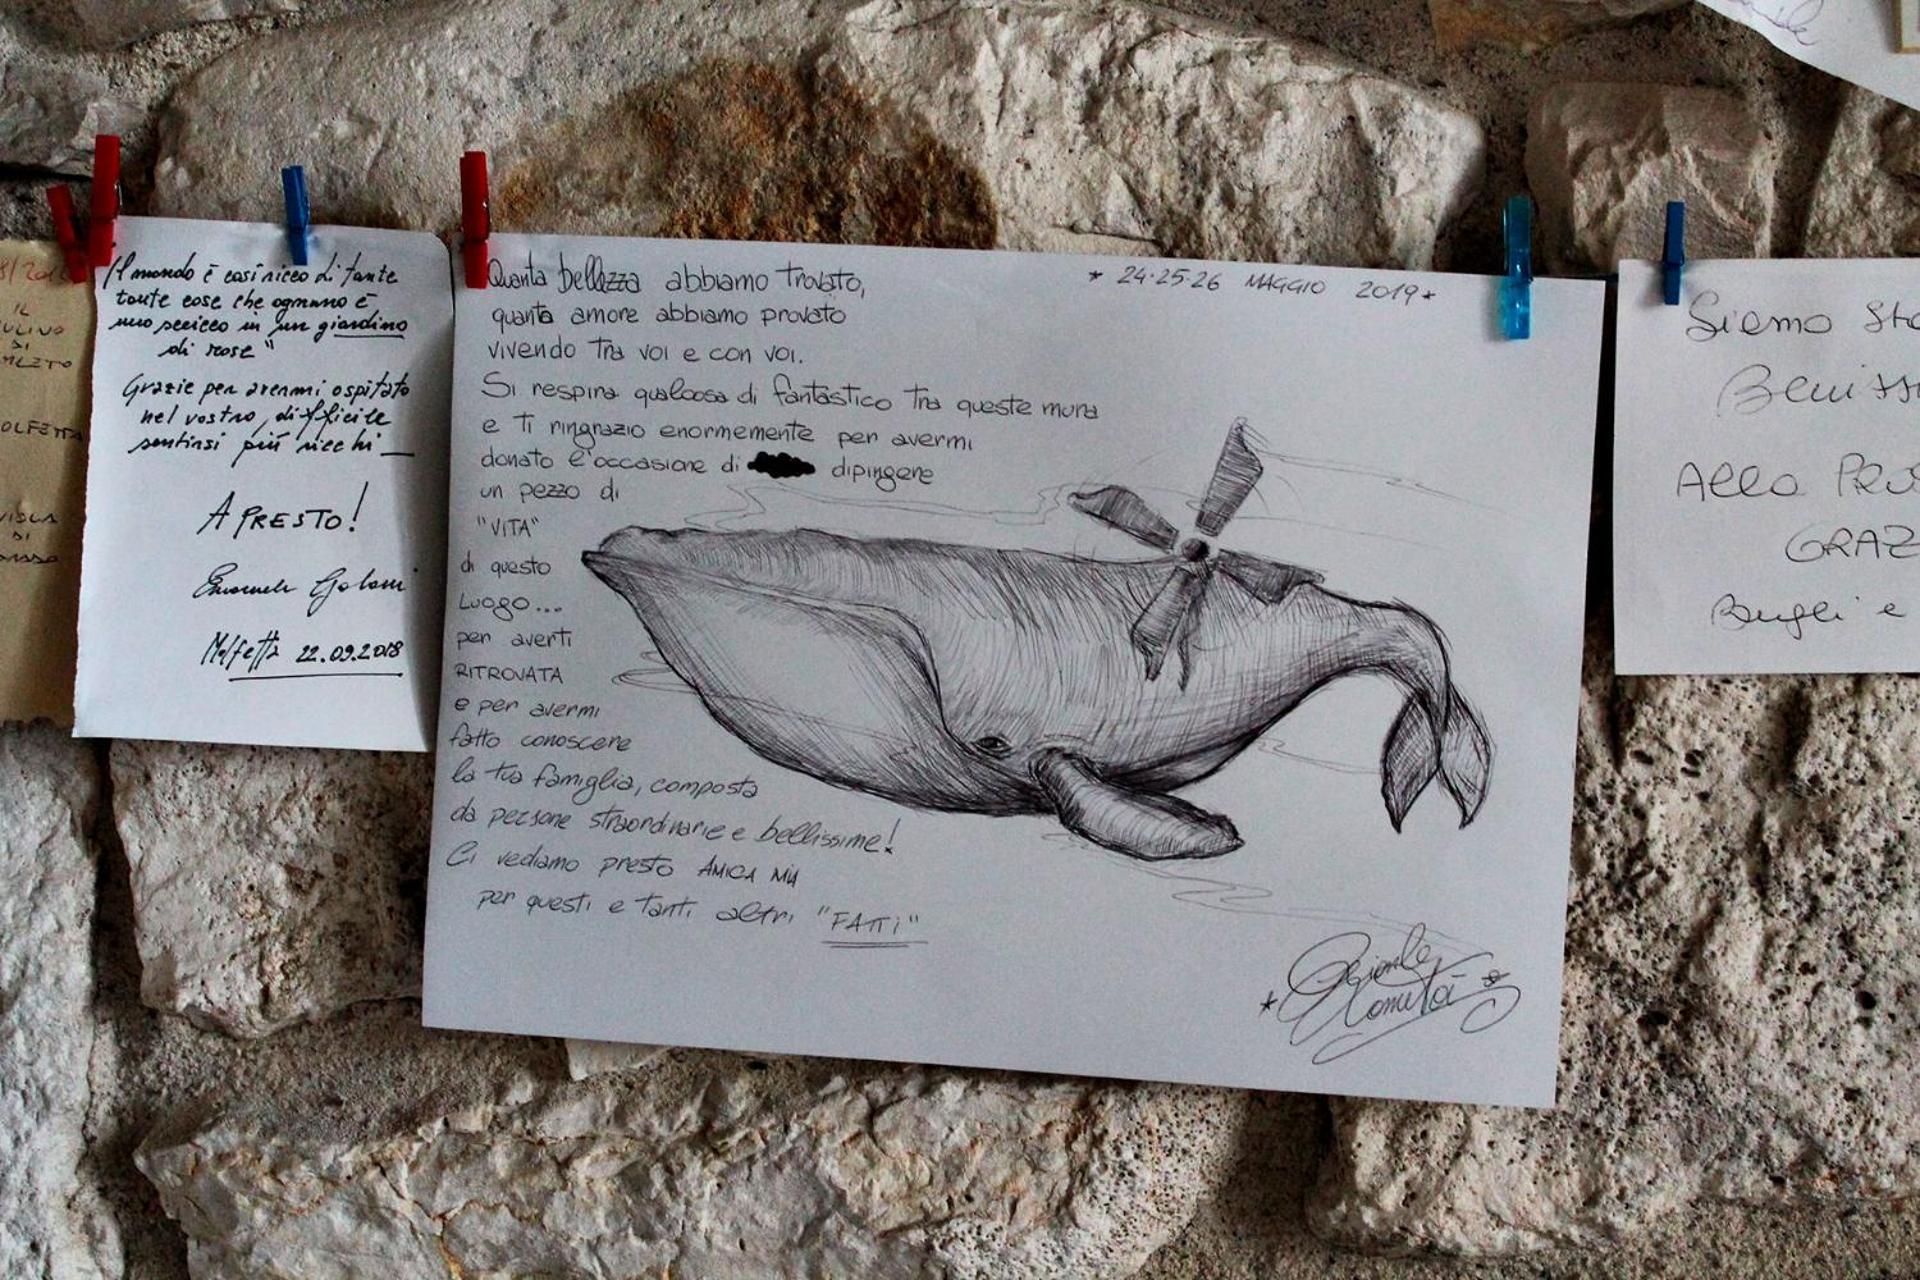 IL
DI
"Il mondo è così ricco di tante
tante cose che ognuno è
uno sceicco in un giardino
di rose"
Grazie per avermi ospitato
nel vostro, difficile
sentirsi più ricchi
A PRESTO!
Emanuele Galani
Molfetta 22.09.2018
Quanta bellezza abbiamo trovato,
quanto amore abbiamo provato
vivendo tra voi e con voi.
Si respira qualcosa di fantastico tra queste mura
e ti ringrazio enormemente per avermi
donato l'occasione di dipingere
un pezzo di
"VITA"
di questo
Luogo...
per averti
RITROVATA
e per avermi
fatto conoscere
la tua famiglia, composta
da persone straordinarie e bellissime!
Ci vediamo presto AMICA MIA
per questi e tanti altri "FATTI"
* 24·25·26 MAGGIO 2019 *
Siamo
GRAZ
e